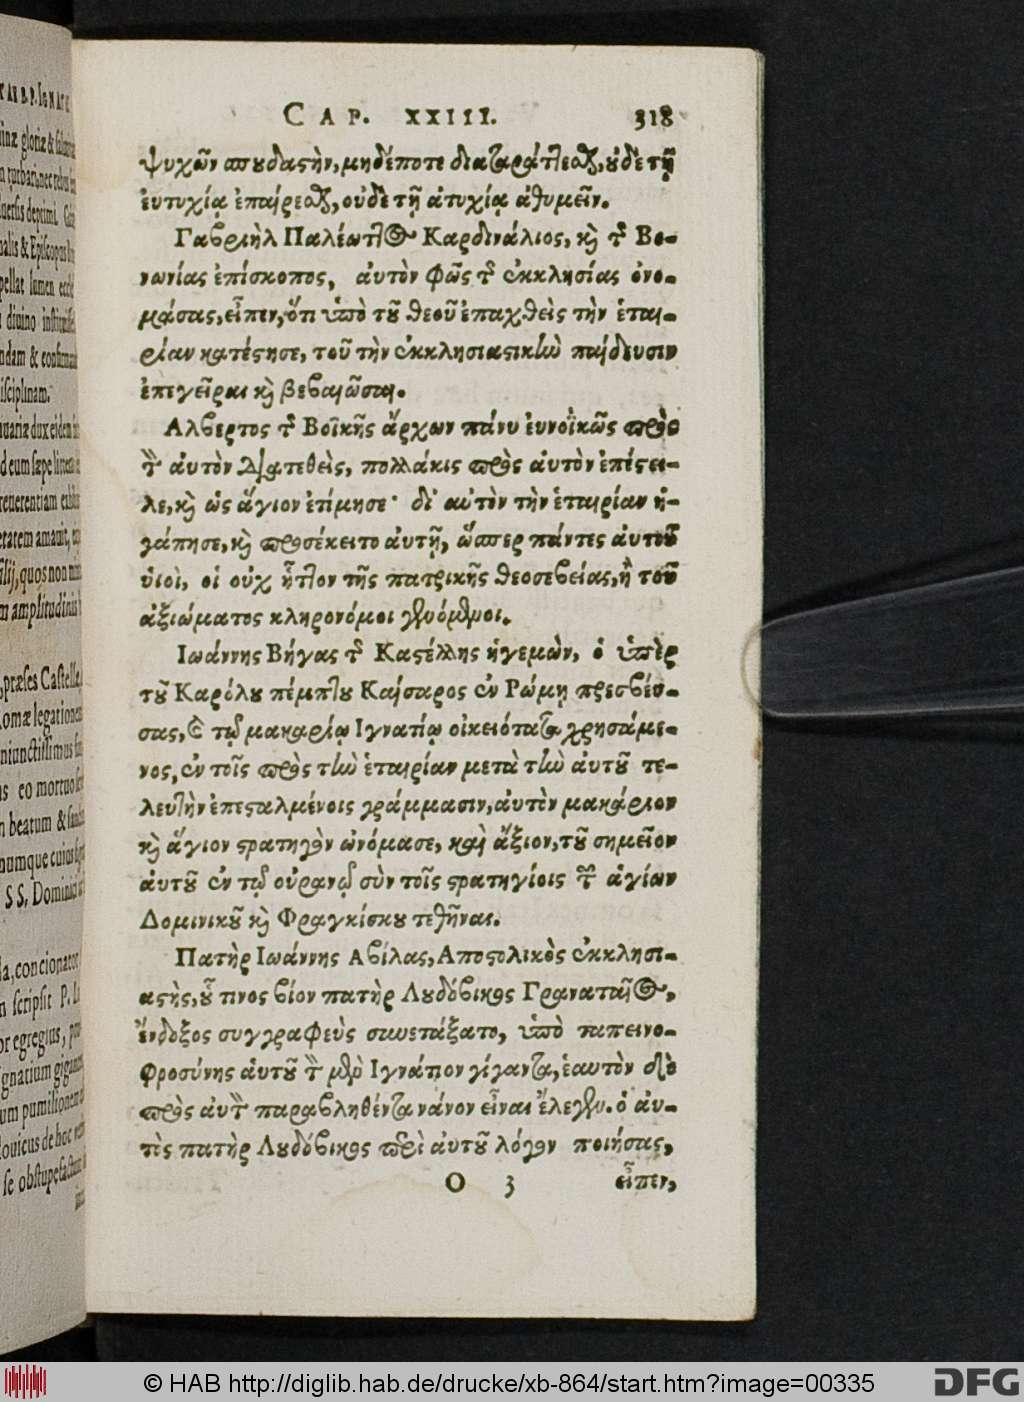 CAP. XXIII. 318
ψυχῶν σπουδαστὴν, μηδέποτε διαταράττεσθαι, οὐδὲ τῇ
ἐυτυχίᾳ ἐπαίρεσθαι, οὐδὲ τῇ ἀτυχίᾳ ἀθυμεῖν.
Γαβριὴλ Παλέωττος Καρδινάλιος, καὶ τῆς Βο-
νωνίας ἐπίσκοπος, ἀυτὸν φῶς τῆς ἐκκλησίας ὀνο-
μάσας, εἶπεν, ὅτι ὑπὸ τοῦ θεοῦ ἐπαχθεὶς τὴν ἑται-
ρίαν κατέστησε, τοῦ τὴν ἐκκλησιαστικὴν παίδευσιν
ἐπεγεῖραι καὶ βεβαιῶσαι.
Αλβερτος τῆς Βοϊκῆς ἄρχων πάνυ ἐυνοϊκῶς πρὸς
τὸν ἀυτὸν διατεθεὶς, πολλάκις πρὸς ἀυτὸν ἐπέστει-
λε, καὶ ὡς ἅγιον ἐτίμησε· δι' αὐτὸν τὴν ἑταιρίαν ἠ-
γάπησε, καὶ προσέκειτο ἀυτῇ, ὥσπερ πάντες ἀυτοῦ
ὑιοὶ, οἱ οὐχ ἧττον τῆς πατρικῆς θεοσεβείας, ἢ τοῦ
ἀξιώματος κληρονόμοι γενόμενοι.
Ιωάννης Βήγας τῆς Καστέλλης ἡγεμὼν, ὁ ὑπὲρ
τοῦ Καρόλου πέμπτου Καίσαρος ἐν Ρώμῃ πρεσβεύ-
σας, καὶ τῷ μακαρίῳ Ιγνατίῳ οἰκειότατα χρησάμε-
νος, ἐν τοῖς πρὸς τὴν ἑταιρίαν μετὰ τὴν ἀυτοῦ τε-
λευτὴν ἐπεσταλμένοις γράμμασιν, ἀυτὸν μακάριον
καὶ ἅγιον στρατηγὸν ὠνόμασε, καὶ ἄξιον, τοῦ σημεῖον
ἀυτοῦ ἐν τῷ οὐρανῷ σὺν τοῖς στρατηγίοις τῶν ἁγίων
Δομινικοῦ καὶ Φραγκίσκου τεθῆναι.
Πατὴρ Ιωάννης Αβίλας, Αποστολικὸς ἐκκλησι-
αστὴς, οὗ τινος βίον πατὴρ Λουδόβικος Γραναταῖος,
ἔνδοξος συγγραφεὺς συνετάξατο, ὑπὸ ταπεινο-
φροσύνης ἀυτοῦ τὸν μὲν Ιγνάτιον γίγαντα, ἑαυτὸν δὲ
πρὸς ἀυτὸν παραβληθέντα νάνον εἶναι ἔλεγεν. ὁ ἀυ-
τὸς πατὴρ Λουδόβικος περὶ ἀυτοῦ λόγον ποιήσας,
O 3 εἶπεν,
© HAB http://diglib.hab.de/drucke/xb-864/start.htm?image=00335
DFG